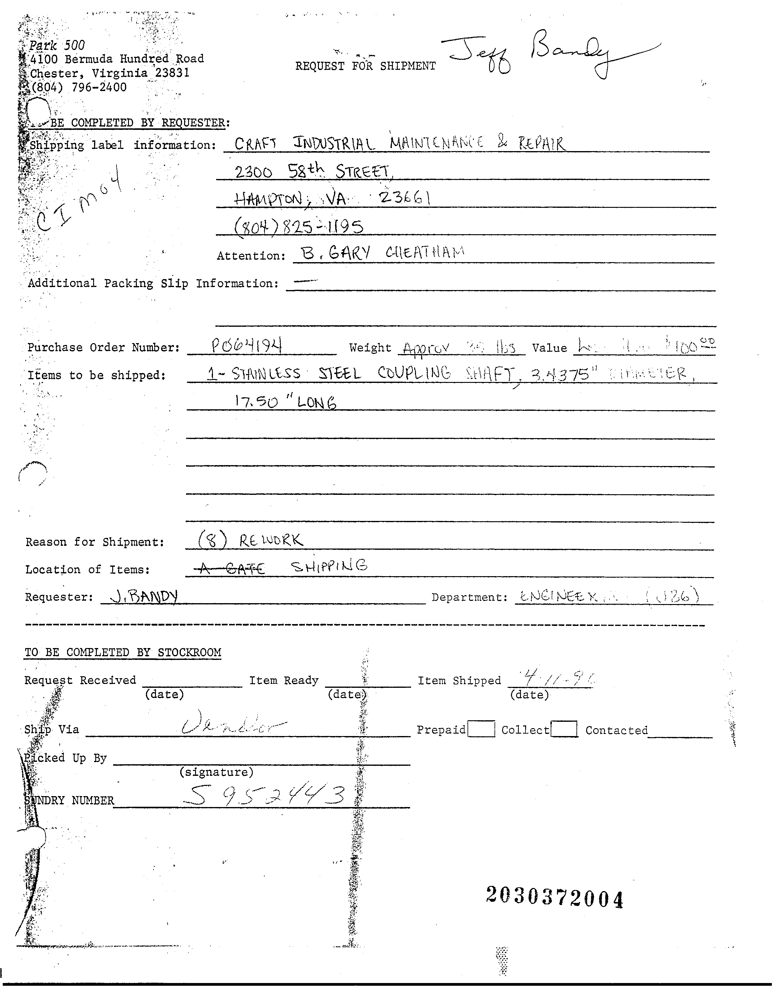 Park 500
4100 Bermuda Hundred Road
Chester, Virginia 23831
(804) 796-2400
REQUEST FOR SHIPMENT Jeff Bandy
BE COMPLETED BY REQUESTER:
Shipping label information: CRAFT INDUSTRIAL MAINTENANCE & REPAIR
2300 58th STREET,
HAMPTON, VA 23661
(804) 825-1195
CIM04
Attention: B. GARY CHEATHAM
Additional Packing Slip Information: —
Purchase Order Number: PO64194 Weight Approx lbs Value $100.00
Items to be shipped: 1- STAINLESS STEEL COUPLING SHAFT, 3.4375" DIAMETER,
17.50" LONG
Reason for Shipment: (8) REWORK
Location of Items: A GATE SHIPPING
Requester: J. BANDY Department: (J86)
TO BE COMPLETED BY STOCKROOM
Request Received Item Ready Item Shipped 4-11-96
(date) (date) (date)
Ship Via Vendor Prepaid Collect Contacted
Picked Up By
(signature)
SUNDRY NUMBER 5952443
2030372004